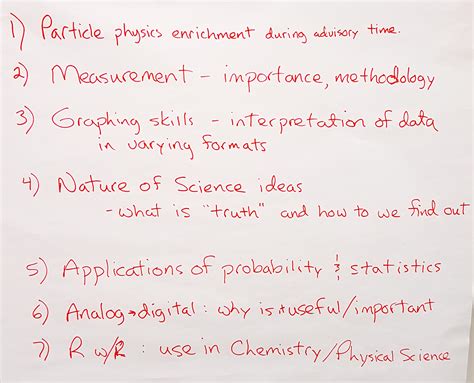 1) Particle physics enrichment during advisory time.
2) Measurement - importance, methodology
3) Graphing skills - interpretation of data
in varying formats
4) Nature of Science ideas
- what is "truth" and how to we find out
5) Applications of probability & statistics
6) Analog→digital : why is it useful/important
7) R w/R : use in Chemistry/Physical Science